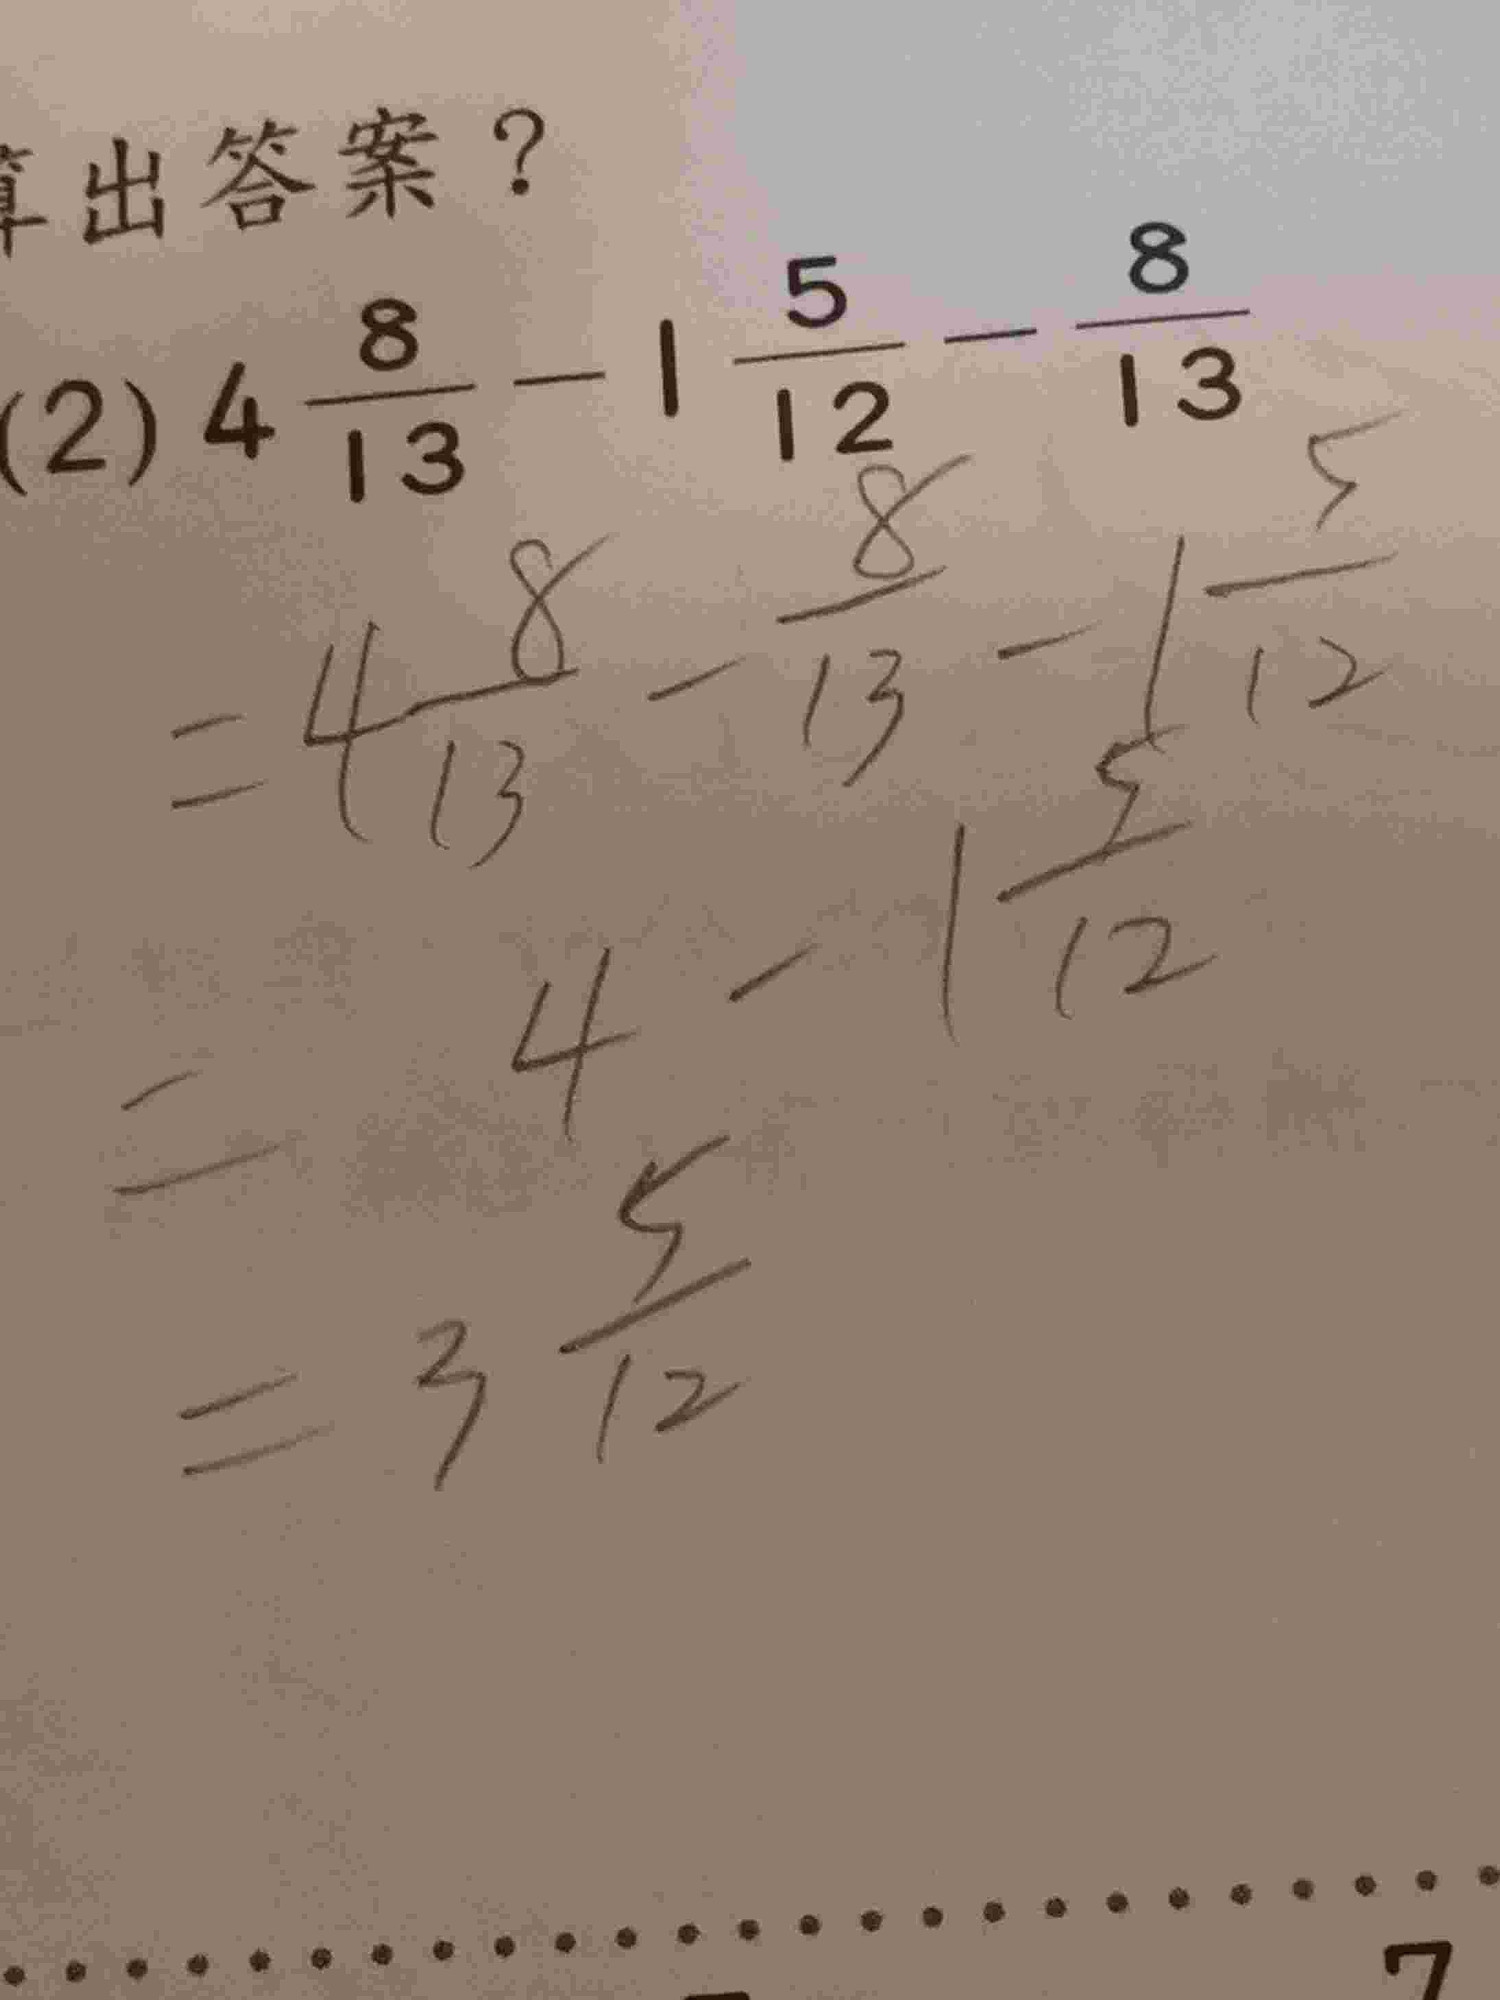 算出答案？
(2) 4 8/13 - 1 5/12 - 8/13
= 4 8/13 - 8/13 - 1 5/12
= 4 - 1 5/12
= 3 5/12
7